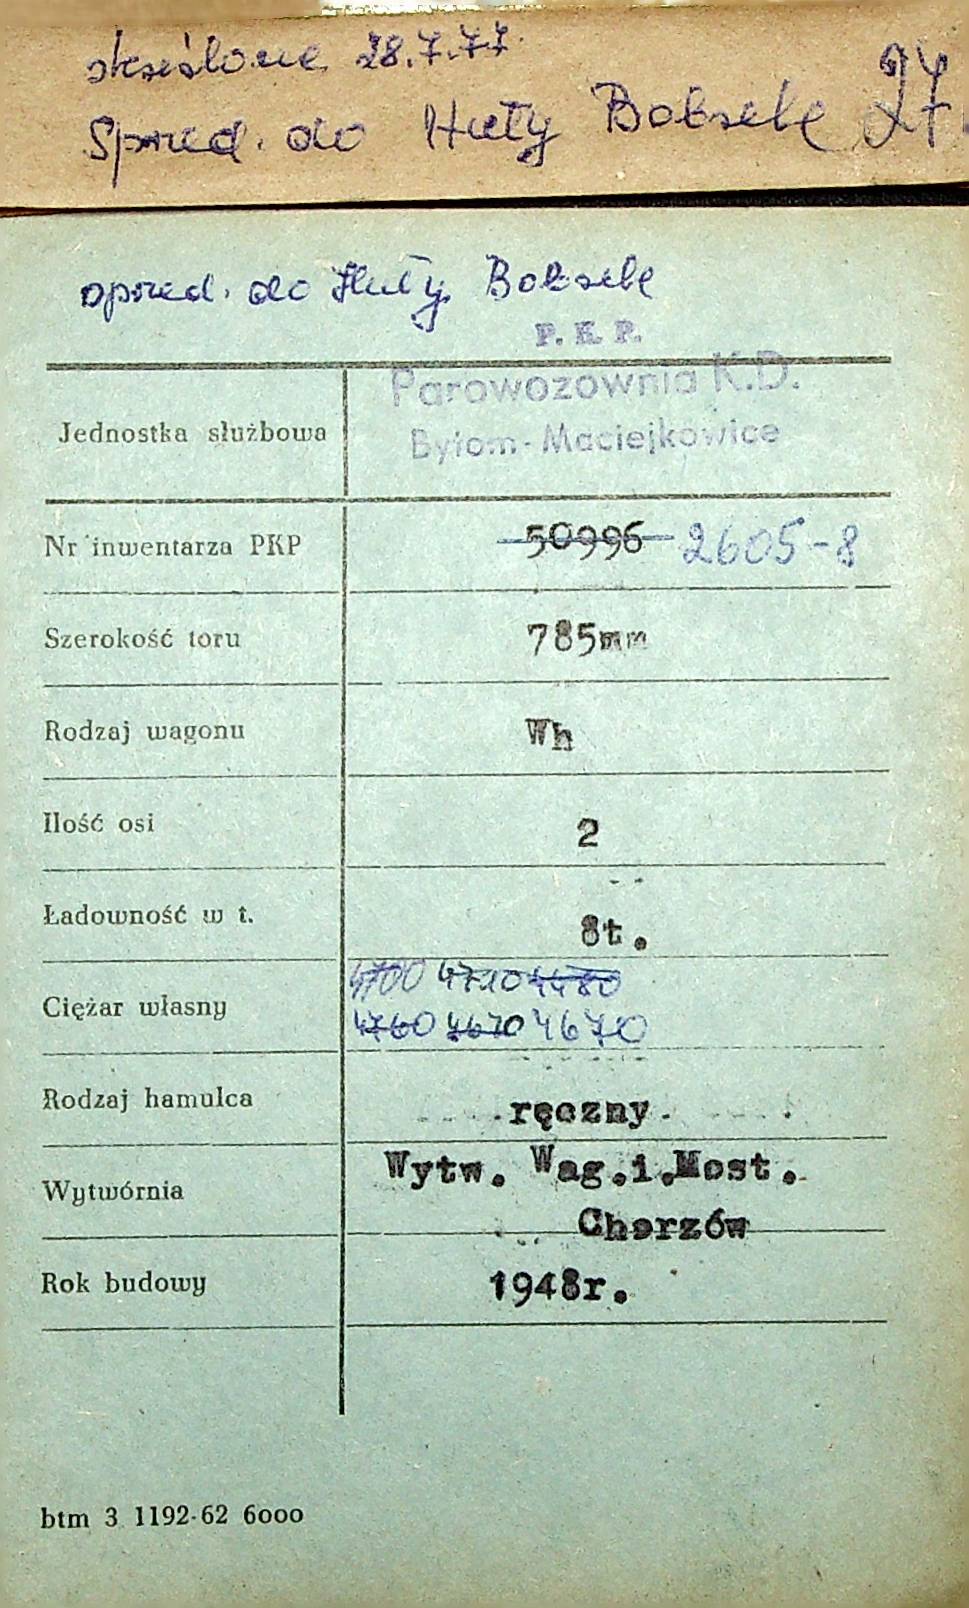 skreślone 28.7.77.
Sprzed. do Huty Bobrek 27
sprzed. do Huty Bobrek
P. K. P.
Parowozownia K.D.
Bytom-Maciejkowice
Jednostka służbowa
Nr inwentarza PKP 50996 2605-8
Szerokość toru 785mm
Rodzaj wagonu Wh
Ilość osi 2
Ładowność w t. 8t.
4700 4710 4480
Ciężar własny
4760 4670 4670
Rodzaj hamulca ręczny.
Wytw. Wag.i.Most.
Wytwórnia
Chorzów
Rok budowy 1948r.
btm 3 1192-62 6000